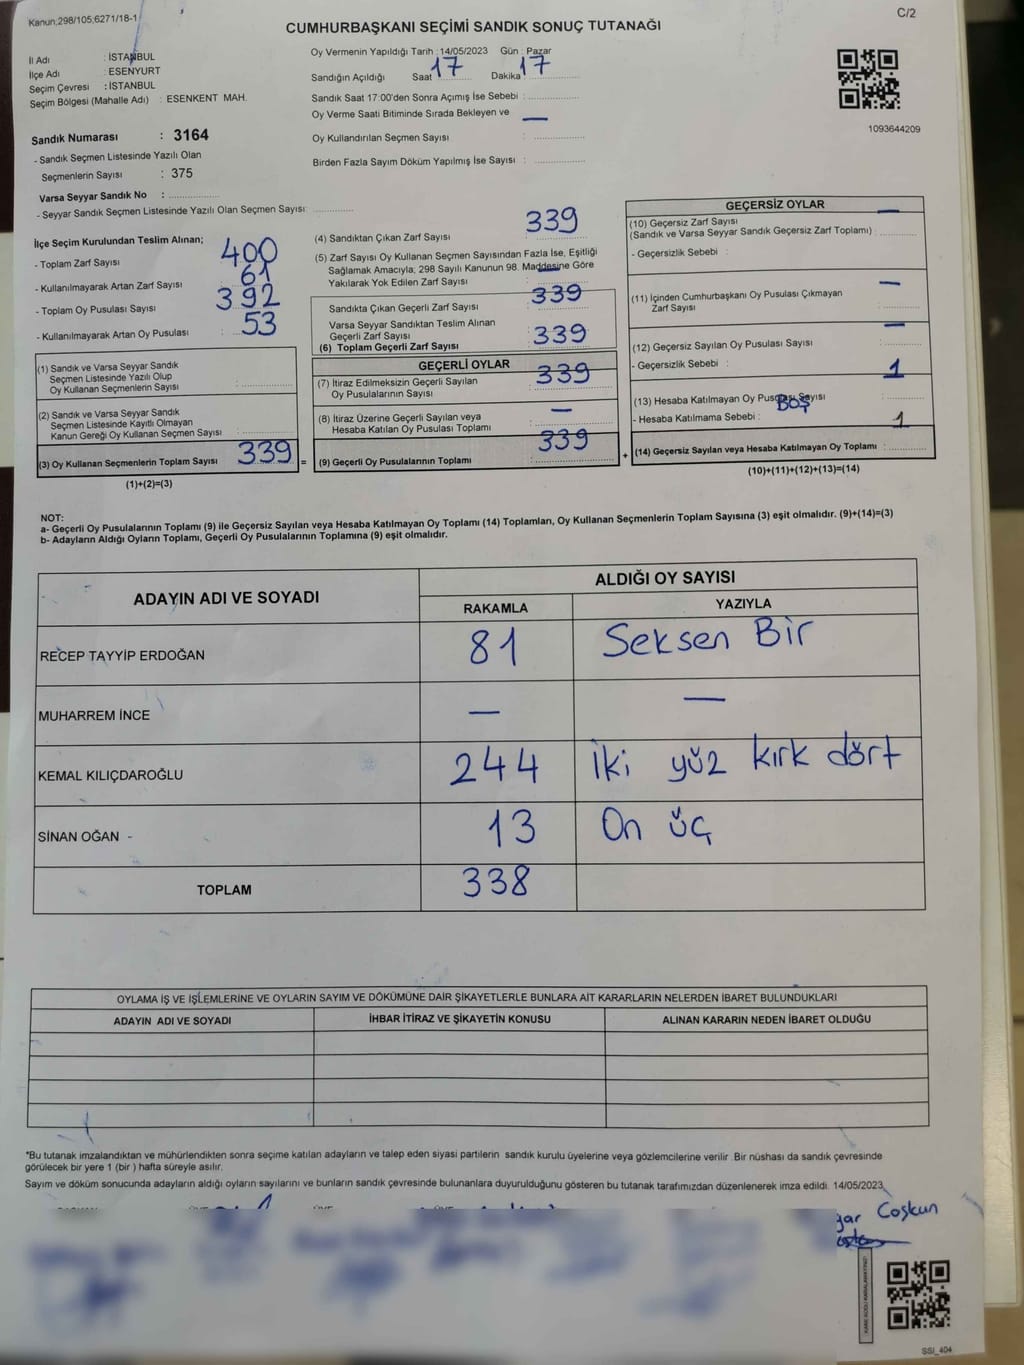 Kanun;298/105,6271/18-1
C/2
CUMHURBAŞKANI SEÇİMİ SANDIK SONUÇ TUTANAĞI
İl Adı : İSTANBUL
İlçe Adı : ESENYURT
Seçim Çevresi : İSTANBUL
Seçim Bölgesi (Mahalle Adı) : ESENKENT MAH.
Sandık Numarası : 3164
- Sandık Seçmen Listesinde Yazılı Olan
Seçmenlerin Sayısı : 375
Varsa Seyyar Sandık No :
- Seyyar Sandık Seçmen Listesinde Yazılı Olan Seçmen Sayısı:
Oy Vermenin Yapıldığı Tarih : 14/05/2023 Gün : Pazar
Sandığın Açıldığı Saat 17 Dakika 17
Sandık Saat 17:00'den Sonra Açımış İse Sebebi :
Oy Verme Saati Bitiminde Sırada Bekleyen ve —
Oy Kullandırılan Seçmen Sayısı :
Birden Fazla Sayım Döküm Yapılmış İse Sayısı :
1093644209
İlçe Seçim Kurulundan Teslim Alınan;
- Toplam Zarf Sayısı : 400
- Kullanılmayarak Artan Zarf Sayısı : 61
- Toplam Oy Pusulası Sayısı : 392
- Kullanılmayarak Artan Oy Pusulası : 53
(1) Sandık ve Varsa Seyyar Sandık
Seçmen Listesinde Yazılı Olup
Oy Kullanan Seçmenlerin Sayısı :
(2) Sandık ve Varsa Seyyar Sandık
Seçmen Listesinde Kayıtlı Olmayan
Kanun Gereği Oy Kullanan Seçmen Sayısı :
(3) Oy Kullanan Seçmenlerin Toplam Sayısı 339 =
(1)+(2)=(3)
(4) Sandıktan Çıkan Zarf Sayısı : 339
(5) Zarf Sayısı Oy Kullanan Seçmen Sayısından Fazla İse, Eşitliği
Sağlamak Amacıyla; 298 Sayılı Kanunun 98. Maddesine Göre
Yakılarak Yok Edilen Zarf Sayısı : —
Sandıkta Çıkan Geçerli Zarf Sayısı : 339
Varsa Seyyar Sandıktan Teslim Alınan
Geçerli Zarf Sayısı :
(6) Toplam Geçerli Zarf Sayısı : 339
GEÇERLİ OYLAR
(7) İtiraz Edilmeksizin Geçerli Sayılan 339
Oy Pusulasının Sayısı :
(8) İtiraz Üzerine Geçerli Sayılan veya —
Hesaba Katılan Oy Pusulası Toplamı :
(9) Geçerli Oy Pusulalarının Toplamı : 339 +
GEÇERSİZ OYLAR
(10) Geçersiz Zarf Sayısı —
(Sandık ve Varsa Seyyar Sandık Geçersiz Zarf Toplamı) :
- Geçersizlik Sebebi :
(11) İçinden Cumhurbaşkanı Oy Pusulası Çıkmayan —
Zarf Sayısı :
(12) Geçersiz Sayılan Oy Pusulası Sayısı : —
- Geçersizlik Sebebi :
(13) Hesaba Katılmayan Oy Pusulası Sayısı 1
- Hesaba Katılmama Sebebi : BOŞ
(14) Geçersiz Sayılan veya Hesaba Katılmayan Oy Toplamı : 1
(10)+(11)+(12)+(13)=(14)
NOT:
a- Geçerli Oy Pusulalarının Toplamı (9) ile Geçersiz Sayılan veya Hesaba Katılmayan Oy Toplamı (14) Toplamları, Oy Kullanan Seçmenlerin Toplam Sayısına (3) eşit olmalıdır. (9)+(14)=(3)
b- Adayların Aldığı Oyların Toplamı, Geçerli Oy Pusulalarının Toplamına (9) eşit olmalıdır.
ADAYIN ADI VE SOYADI
ALDIĞI OY SAYISI
RAKAMLA YAZIYLA
RECEP TAYYİP ERDOĞAN 81 Seksen Bir
MUHARREM İNCE — —
KEMAL KILIÇDAROĞLU 244 İki yüz kırk dört
SİNAN OĞAN 13 On üç
TOPLAM 338
OYLAMA İŞ VE İŞLEMLERİNE VE OYLARIN SAYIM VE DÖKÜMÜNE DAİR ŞİKAYETLERLE BUNLARA AİT KARARLARIN NELERDEN İBARET BULUNDUKLARI
ADAYIN ADI VE SOYADI İHBAR İTİRAZ VE ŞİKAYETİN KONUSU ALINAN KARARIN NEDEN İBARET OLDUĞU
*Bu tutanak imzalandıktan ve mühürlendikten sonra seçime katılan adayların ve talep eden siyasi partilerin sandık kurulu üyelerine veya gözlemcilerine verilir. Bir nüshası da sandık çevresinde
görülecek bir yere 1 (bir ) hafta süreyle asılır.
Sayım ve döküm sonucunda adayların aldığı oyların sayılarını ve bunların sandık çevresinde bulunanlara duyurulduğunu gösteren bu tutanak tarafımızdan düzenlenerek imza edildi. 14/05/2023
Coşkun
SSI_404